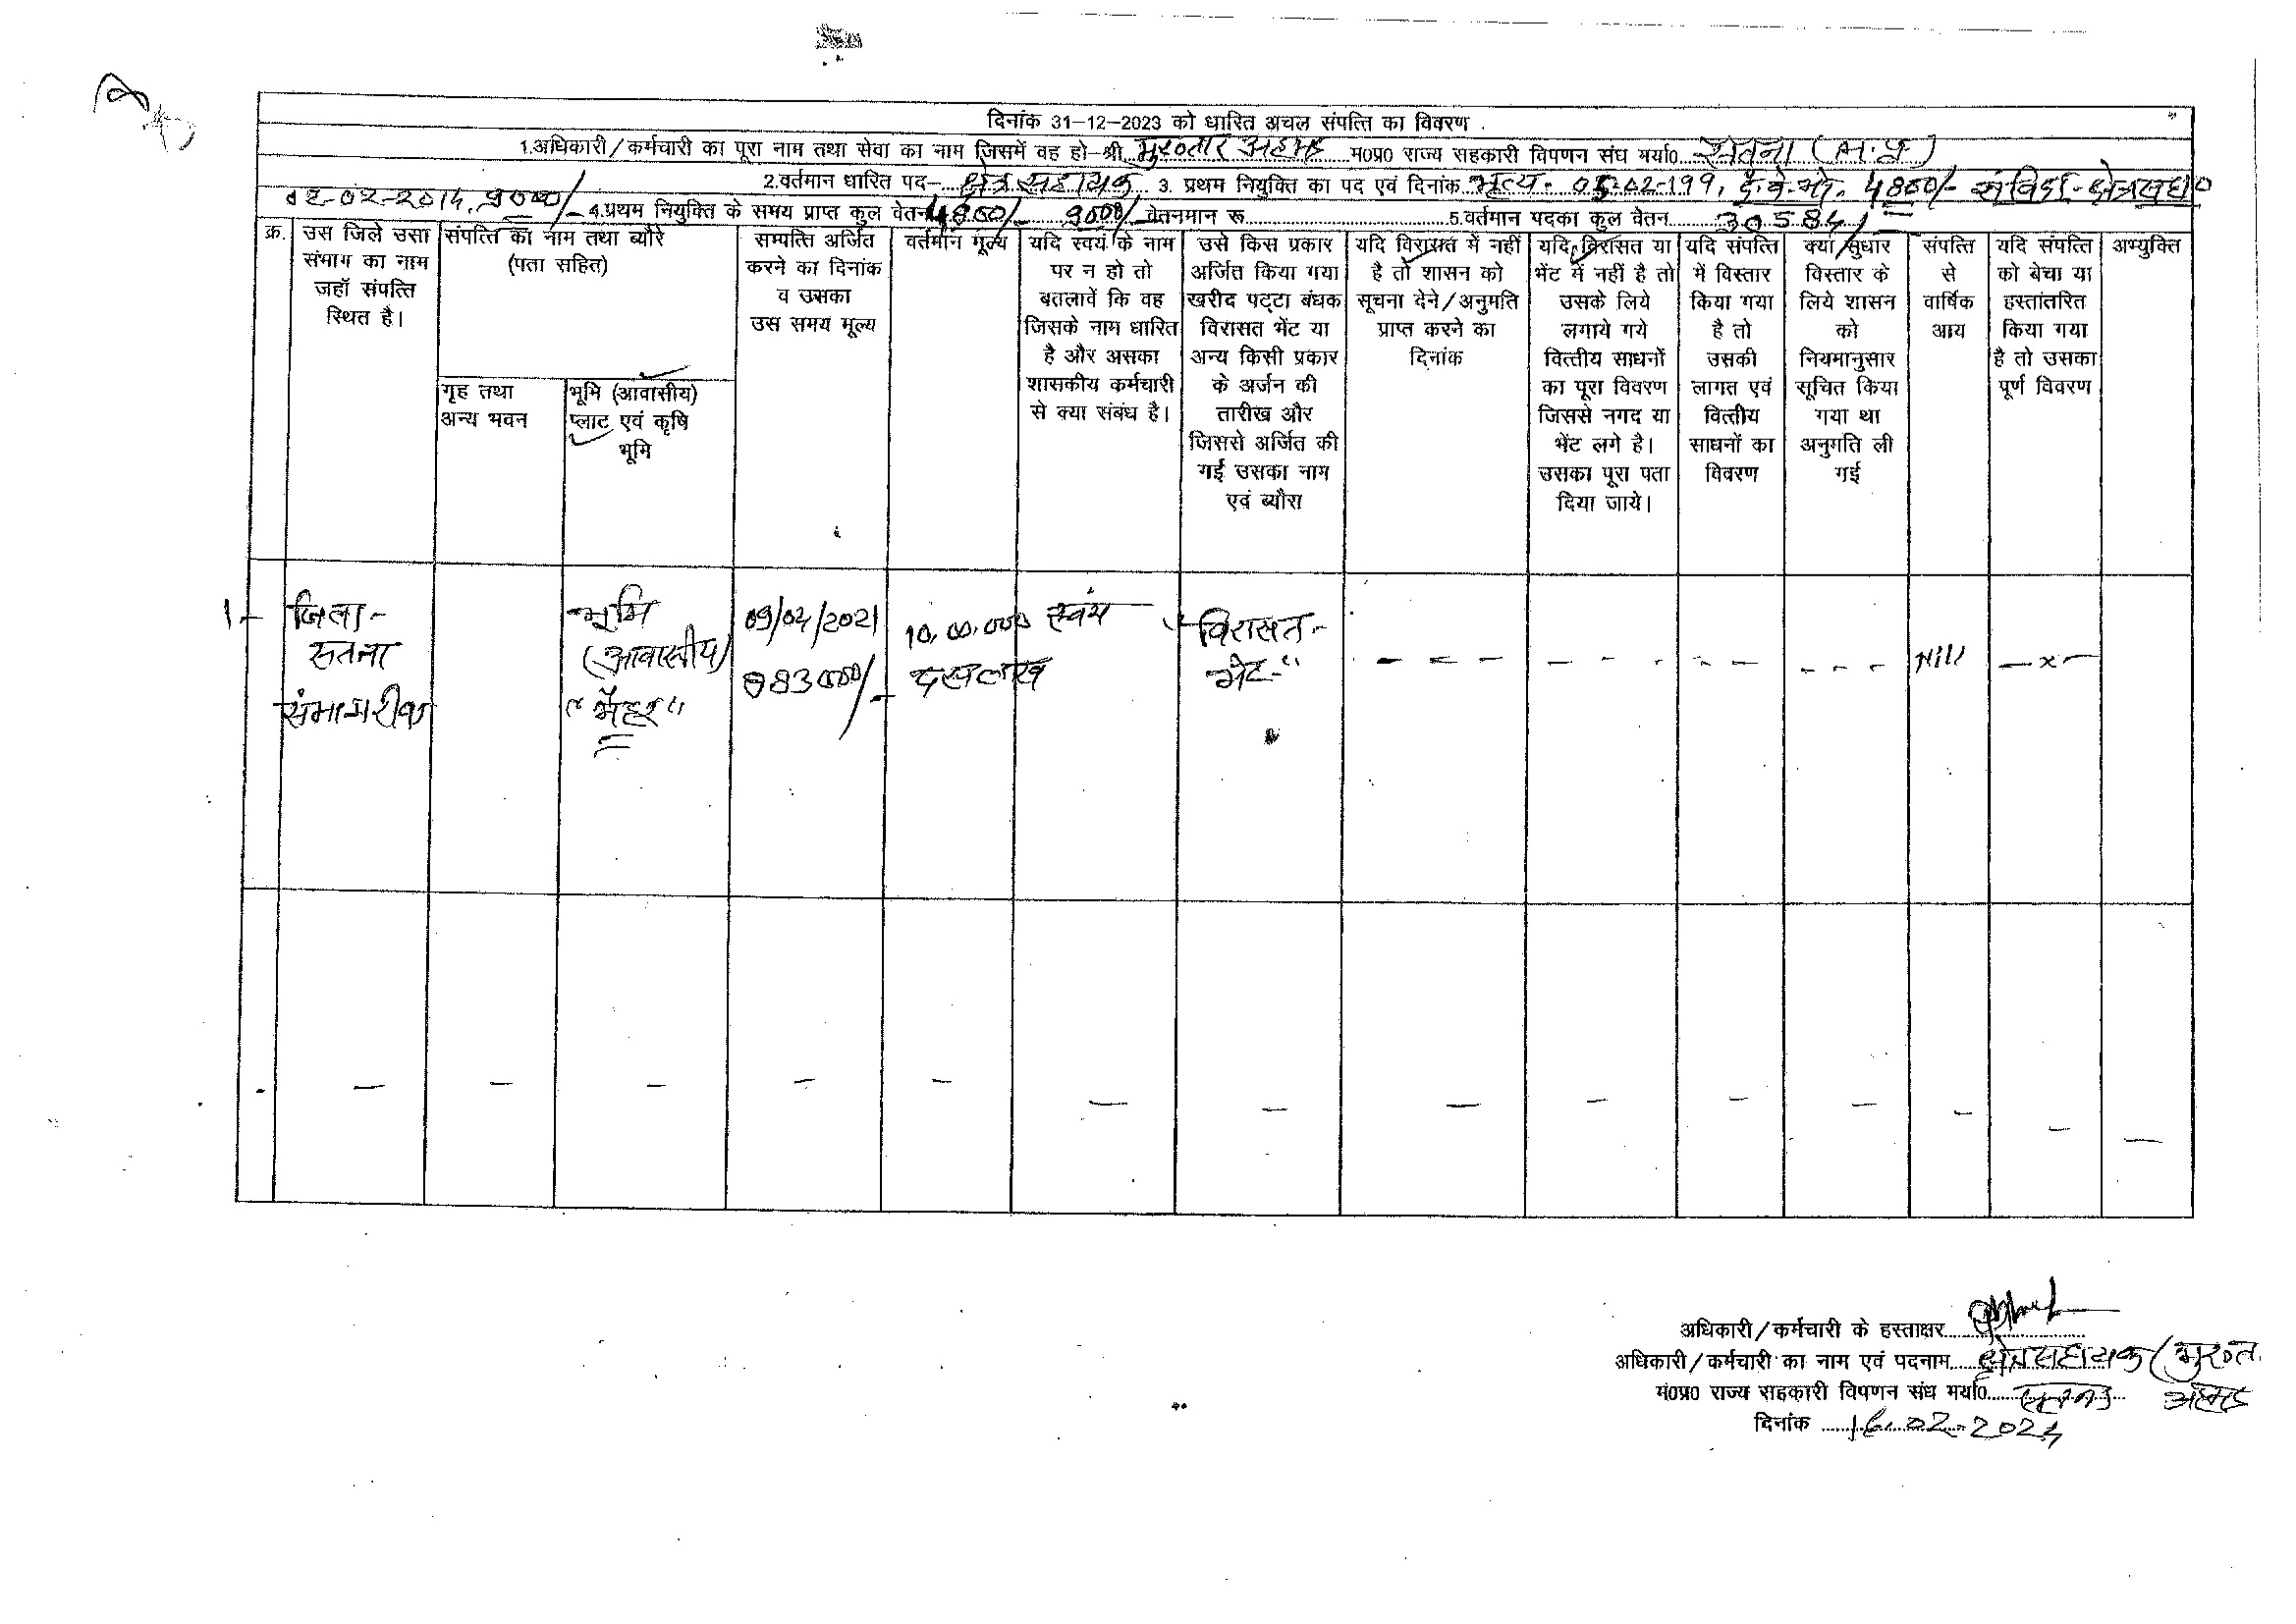 दिनांक 31-12-2023 को धारित अचल संपत्ति का विवरण
1.अधिकारी/कर्मचारी का पूरा नाम तथा सेवा का नाम जिसमें वह हो-श्री मुख्तार अहमद म0प्र0 राज्य सहकारी विपणन संघ मर्या0 सतना (म.प्र.)
2.वर्तमान धारित पद- क्षेत्र सहायक 3. प्रथम नियुक्ति का पद एवं दिनांक भृत्य- 05-02-199, दै.वे.भो. 4800/- संविदा-क्षेत्रसहा0
02-02-2014, 9000/- 4.प्रथम नियुक्ति के समय प्राप्त कुल वेतन 4800/- 9000/- वेतनमान रू 5.वर्तमान पदका कुल वेतन 30584/-
क्र.
उस जिले उसा
संभाग का नाम
जहॉ संपत्ति
स्थित है।
संपत्ति का नाम तथा ब्यौरे
(पता सहित)
गृह तथा
अन्य भवन
भूमि (आवासीय)
प्लाट एवं कृषि
भूमि
सम्पत्ति अर्जित
करने का दिनांक
व उसका
उस समय मूल्य
वर्तमान मूल्य
यदि स्वयं के नाम
पर न हो तो
बतलावें कि वह
जिसके नाम धारित
है और असका
शासकीय कर्मचारी
से क्या संबंध है।
उसे किस प्रकार
अर्जित किया गया
खरीद पट्टा बंधक
विरासत भेंट या
अन्य किसी प्रकार
के अर्जन की
तारीख और
जिससे अर्जित की
गई उसका नाम
एवं ब्यौरा
यदि विरासत में नहीं
है तो शासन को
सूचना देने/अनुमति
प्राप्त करने का
दिनांक
यदि विरासत या
भेंट में नहीं है तो
उसके लिये
लगाये गये
वित्तीय साधनों
का पूरा विवरण
जिससे नगद या
भेंट लगे है।
उसका पूरा पता
दिया जाये।
यदि संपत्ति
में विस्तार
किया गया
है तो
उसकी
लागत एवं
वित्तीय
साधनों का
विवरण
क्या सुधार
विस्तार के
लिये शासन
को
नियमानुसार
सूचित किया
गया था
अनुमति ली
गई
संपत्ति
से
वार्षिक
आय
यदि संपत्ति
को बेचा या
हस्तांतरित
किया गया
है तो उसका
पूर्ण विवरण
अभ्युक्ति
1-
जिला-
सतना
संभाग रीवा
भूमि
(आवासीय)
"मैहर"
09/04/2021
983000/-
10,00,000
दस लाख
स्वयं
"विरासत-
भेंट-"
- - -
- - - -
- - -
- - - -
Nill
-x-
- - - - - - - - - - - - - -
अधिकारी/कर्मचारी के हस्ताक्षर
अधिकारी/कर्मचारी का नाम एवं पदनाम क्षेत्रसहायक (मुख्त.
म0प्र0 राज्य सहकारी विपणन संघ मर्या0 सतना अहमद
दिनांक 16-02-2024